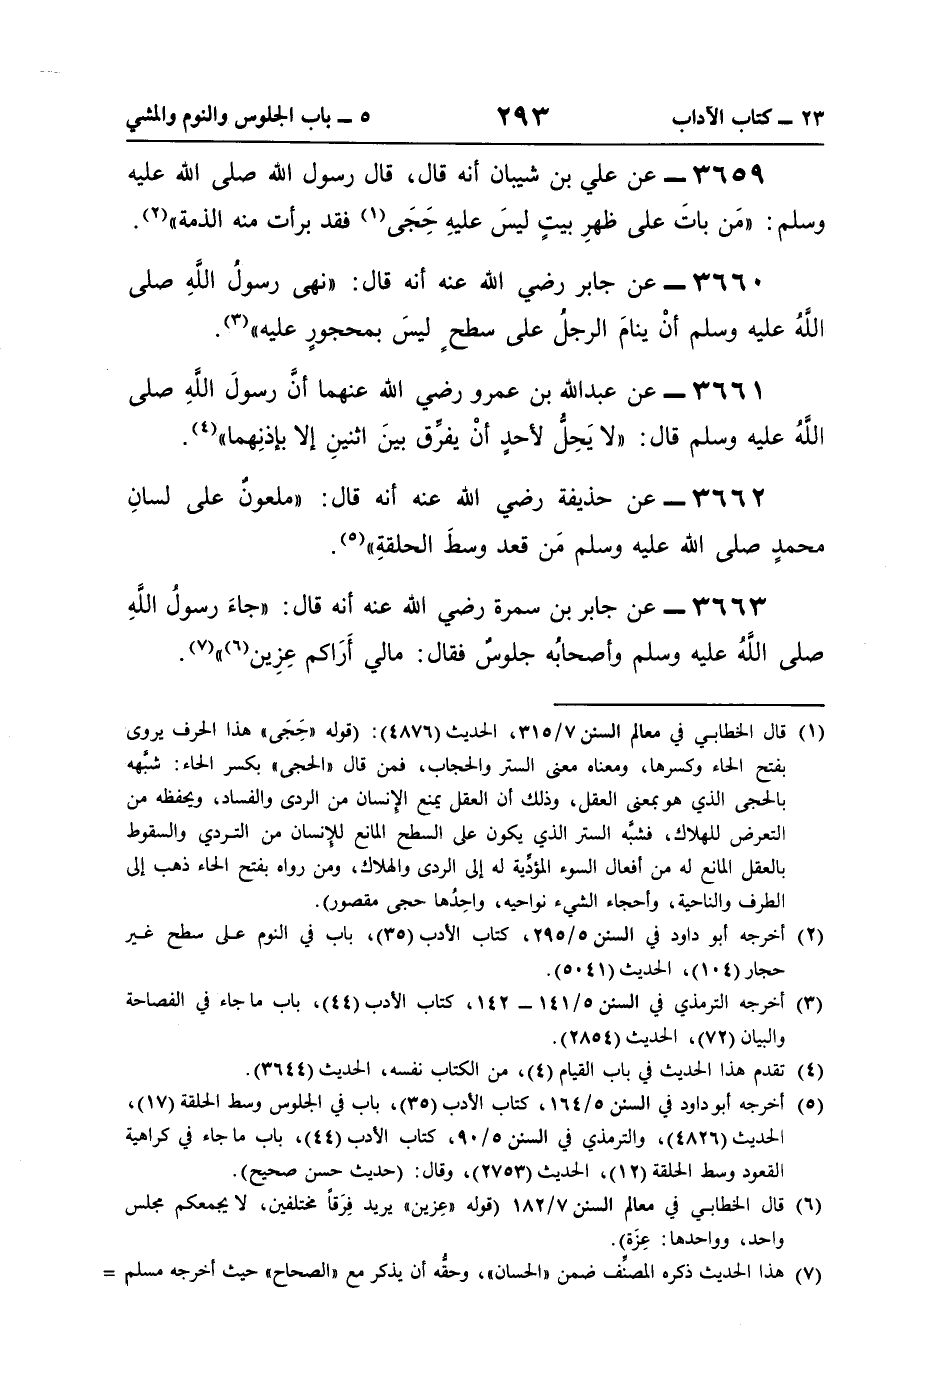 ٢٣ ـ كتاب الآداب ٢٩٣ ٥ ـ باب الجلوس والنوم والمشي
٣٦٥٩ ـ عن علي بن شيبان أنه قال، قال رسول الله صلى الله عليه
وسلم: «مَن باتَ على ظهرِ بيتٍ ليسَ عليهِ حَِجَى(١) فقد برأت منه الذمة»(٢).
٣٦٦٠ ـ عن جابر رضي الله عنه أنه قال: «نهى رسولُ اللَّهِ صلى
اللَّهُ عليه وسلم أنْ ينامَ الرجلُ على سطحٍ ليسَ بمحجورٍ عليه»(٣).
٣٦٦١ ـ عن عبدالله بن عمرو رضي الله عنهما أنَّ رسولَ اللَّهِ صلى
اللَّهُ عليه وسلم قال: «لا يَحِلُّ لأحدٍ أنْ يفرِّق بينَ اثنينِ إلا بإذنِهما»(٤).
٣٦٦٢ ـ عن حذيفة رضي الله عنه أنه قال: «ملعونٌ على لسانِ
محمدٍ صلى الله عليه وسلم مَن قعد وسطَ الحلقةِ»(٥).
٣٦٦٣ ـ عن جابر بن سمرة رضي الله عنه أنه قال: «جاءَ رسولُ اللَّهِ
صلى اللَّهُ عليه وسلم وأصحابُه جلوسٌ فقال: مالي أَرَاكم عِزِين(٦)»(٧).
(١) قال الخطابي في معالم السنن ٣١٥/٧، الحديث (٤٨٧٦): (قوله «حَِجَى» هذا الحرف يروى
بفتح الحاء وكسرها، ومعناه معنى الستر والحجاب، فمن قال «الحجى» بكسر الحاء: شبَّهه
بالحجى الذي هو بمعنى العقل، وذلك أن العقل يمنع الإنسان من الردى والفساد، ويحفظه من
التعرض للهلاك، فشبَّه الستر الذي يكون على السطح المانع للإنسان من التردي والسقوط
بالعقل المانع له من أفعال السوء المؤدِّية له إلى الردى والهلاك، ومن رواه بفتح الحاء ذهب إلى
الطرف والناحية، وأحجاء الشيء نواحيه، واحِدُها حجى مقصور).
(٢) أخرجه أبو داود في السنن ٢٩٥/٥، كتاب الأدب (٣٥)، باب في النوم على سطح غير
حجار (١٠٤)، الحديث (٥٠٤١).
(٣) أخرجه الترمذي في السنن ١٤١/٥ ـ ١٤٢، كتاب الأدب (٤٤)، باب ما جاء في الفصاحة
والبيان (٧٢)، الحديث (٢٨٥٤).
(٤) تقدم هذا الحديث في باب القيام (٤)، من الكتاب نفسه، الحديث (٣٦٤٤).
(٥) أخرجه أبو داود في السنن ١٦٤/٥، كتاب الأدب (٣٥)، باب في الجلوس وسط الحلقة (١٧)،
الحديث (٤٨٢٦)، والترمذي في السنن ٩٠/٥، كتاب الأدب (٤٤)، باب ما جاء في كراهية
القعود وسط الحلقة (١٢)، الحديث (٢٧٥٣)، وقال: (حديث حسن صحيح).
(٦) قال الخطابي في معالم السنن ١٨٢/٧ (قوله «عِزين» يريد فِرَقاً مختلفين، لا يجمعكم مجلس
واحد، وواحدها: عِزَة).
(٧) هذا الحديث ذكره المصنِّف ضمن «الحسان»، وحقُّه أن يذكر مع «الصحاح» حيث أخرجه مسلم =